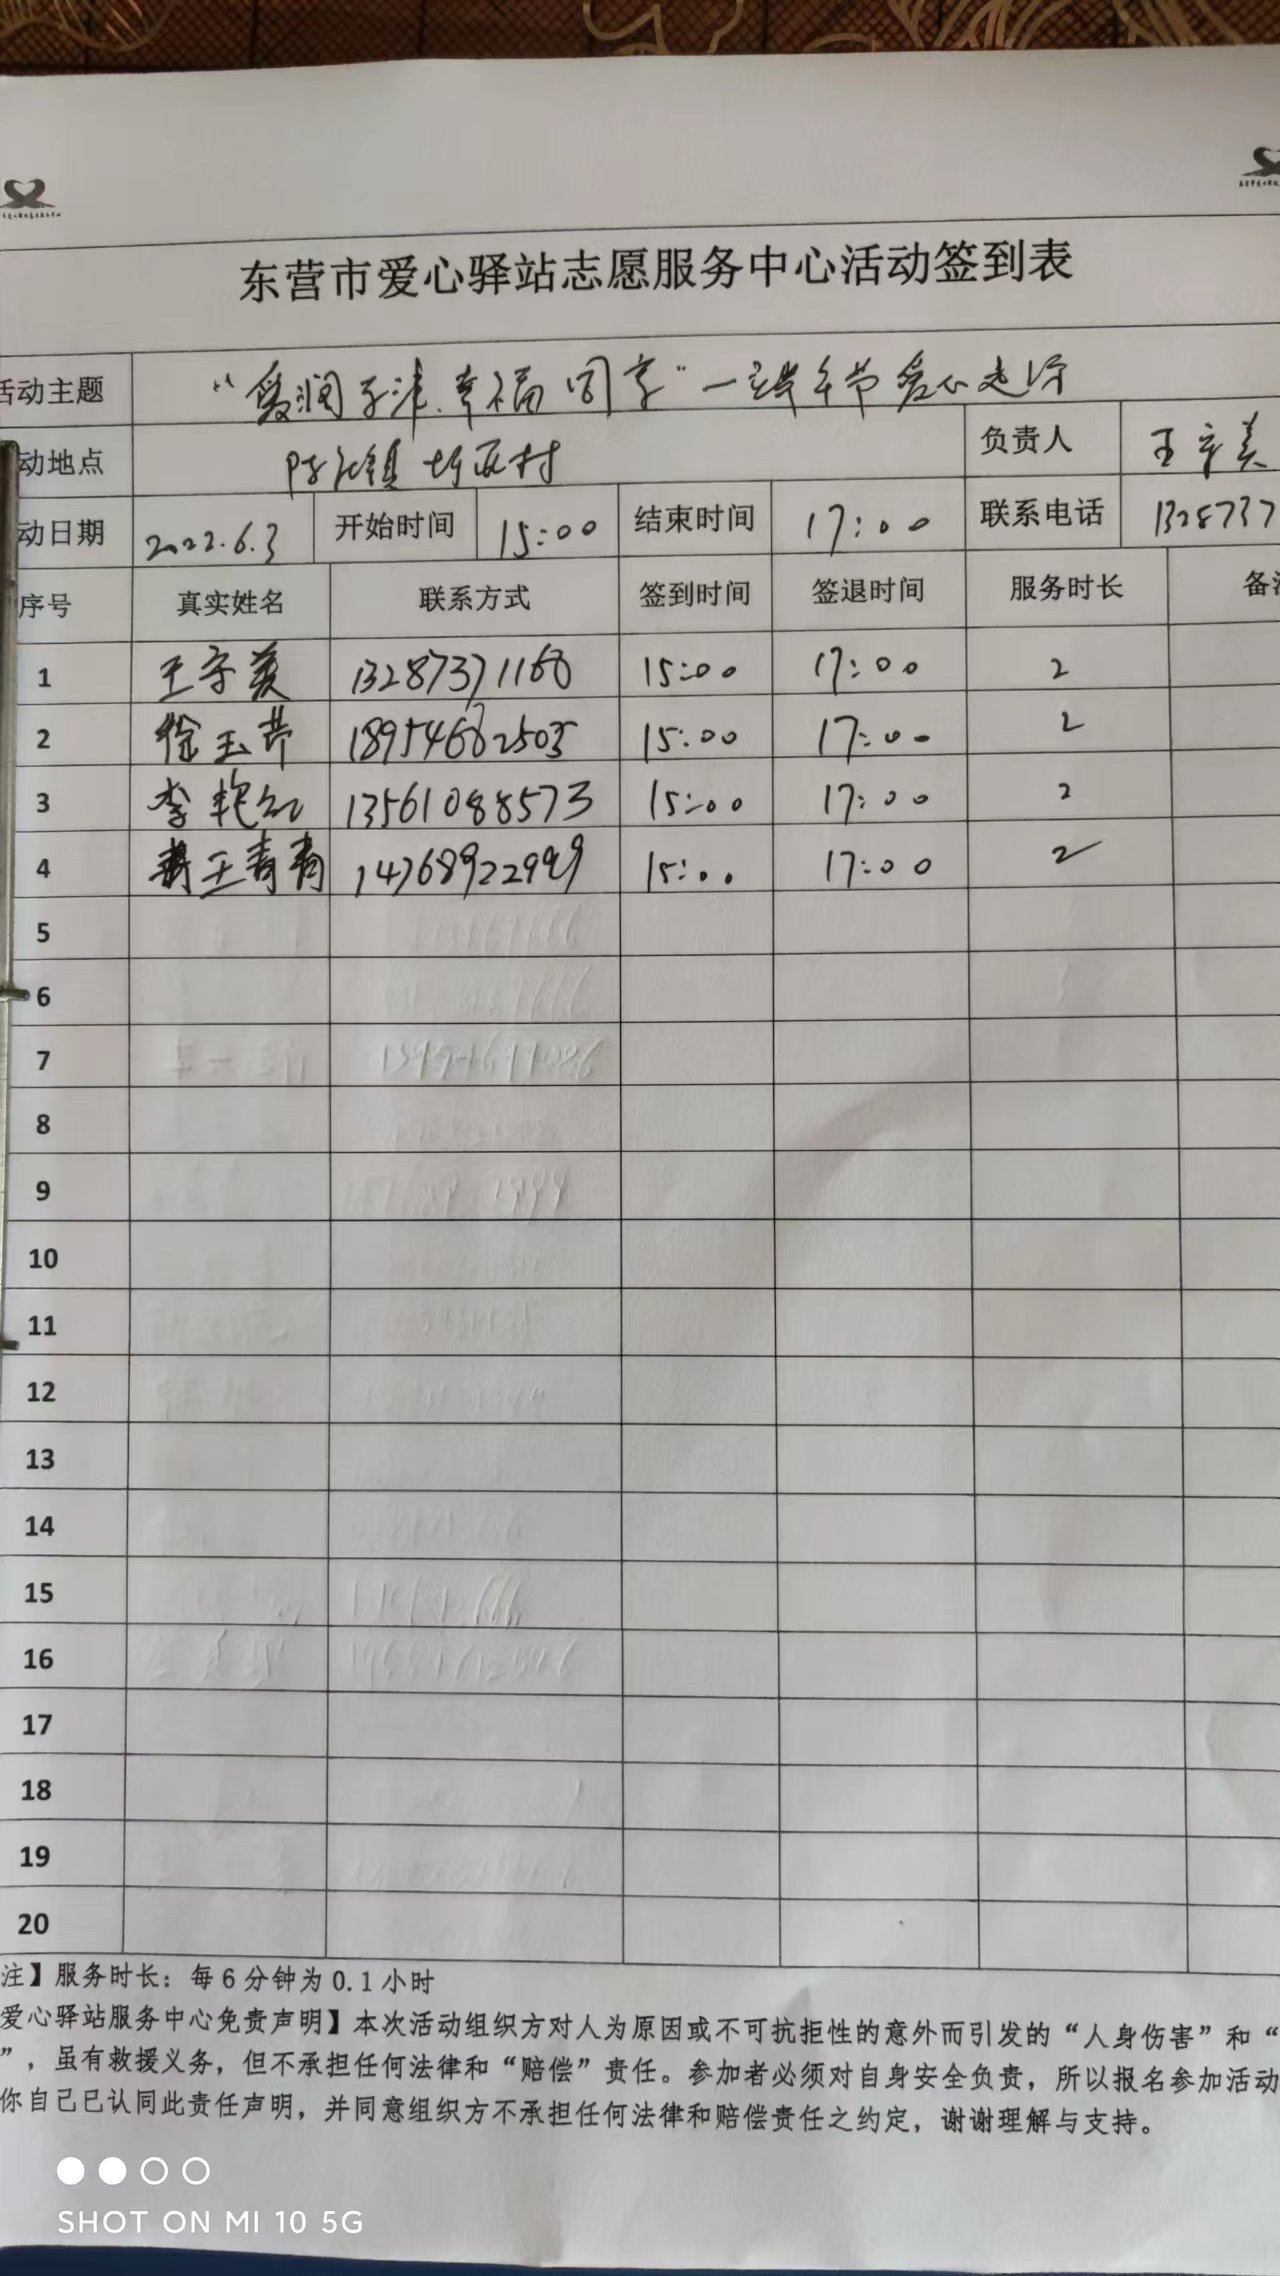 东营市爱心驿站志愿服务中心活动签到表
活动主题 “爱润利津.幸福同享”一端午节爱心走访
动地点 陈庄镇 村 负责人 王守美
动日期 2022.6.3 开始时间 15:00 结束时间 17:00 联系电话 1328737
序号 真实姓名 联系方式 签到时间 签退时间 服务时长 备注
1 王守美 13287371168 15:00 17:00 2
2 徐玉芹 18954682503 15:00 17:00 2
3 李艳红 13561088573 15:00 17:00 2
4 王青青 14768922999 15:00 17:00 2
5
6
7
8
9
10
11
12
13
14
15
16
17
18
19
20
注】服务时长：每6分钟为0.1小时
爱心驿站服务中心免责声明】本次活动组织方对人为原因或不可抗拒性的意外而引发的“人身伤害”和“
”，虽有救援义务，但不承担任何法律和“赔偿”责任。参加者必须对自身安全负责，所以报名参加活动
你自己已认同此责任声明，并同意组织方不承担任何法律和赔偿责任之约定，谢谢理解与支持。
SHOT ON MI 10 5G